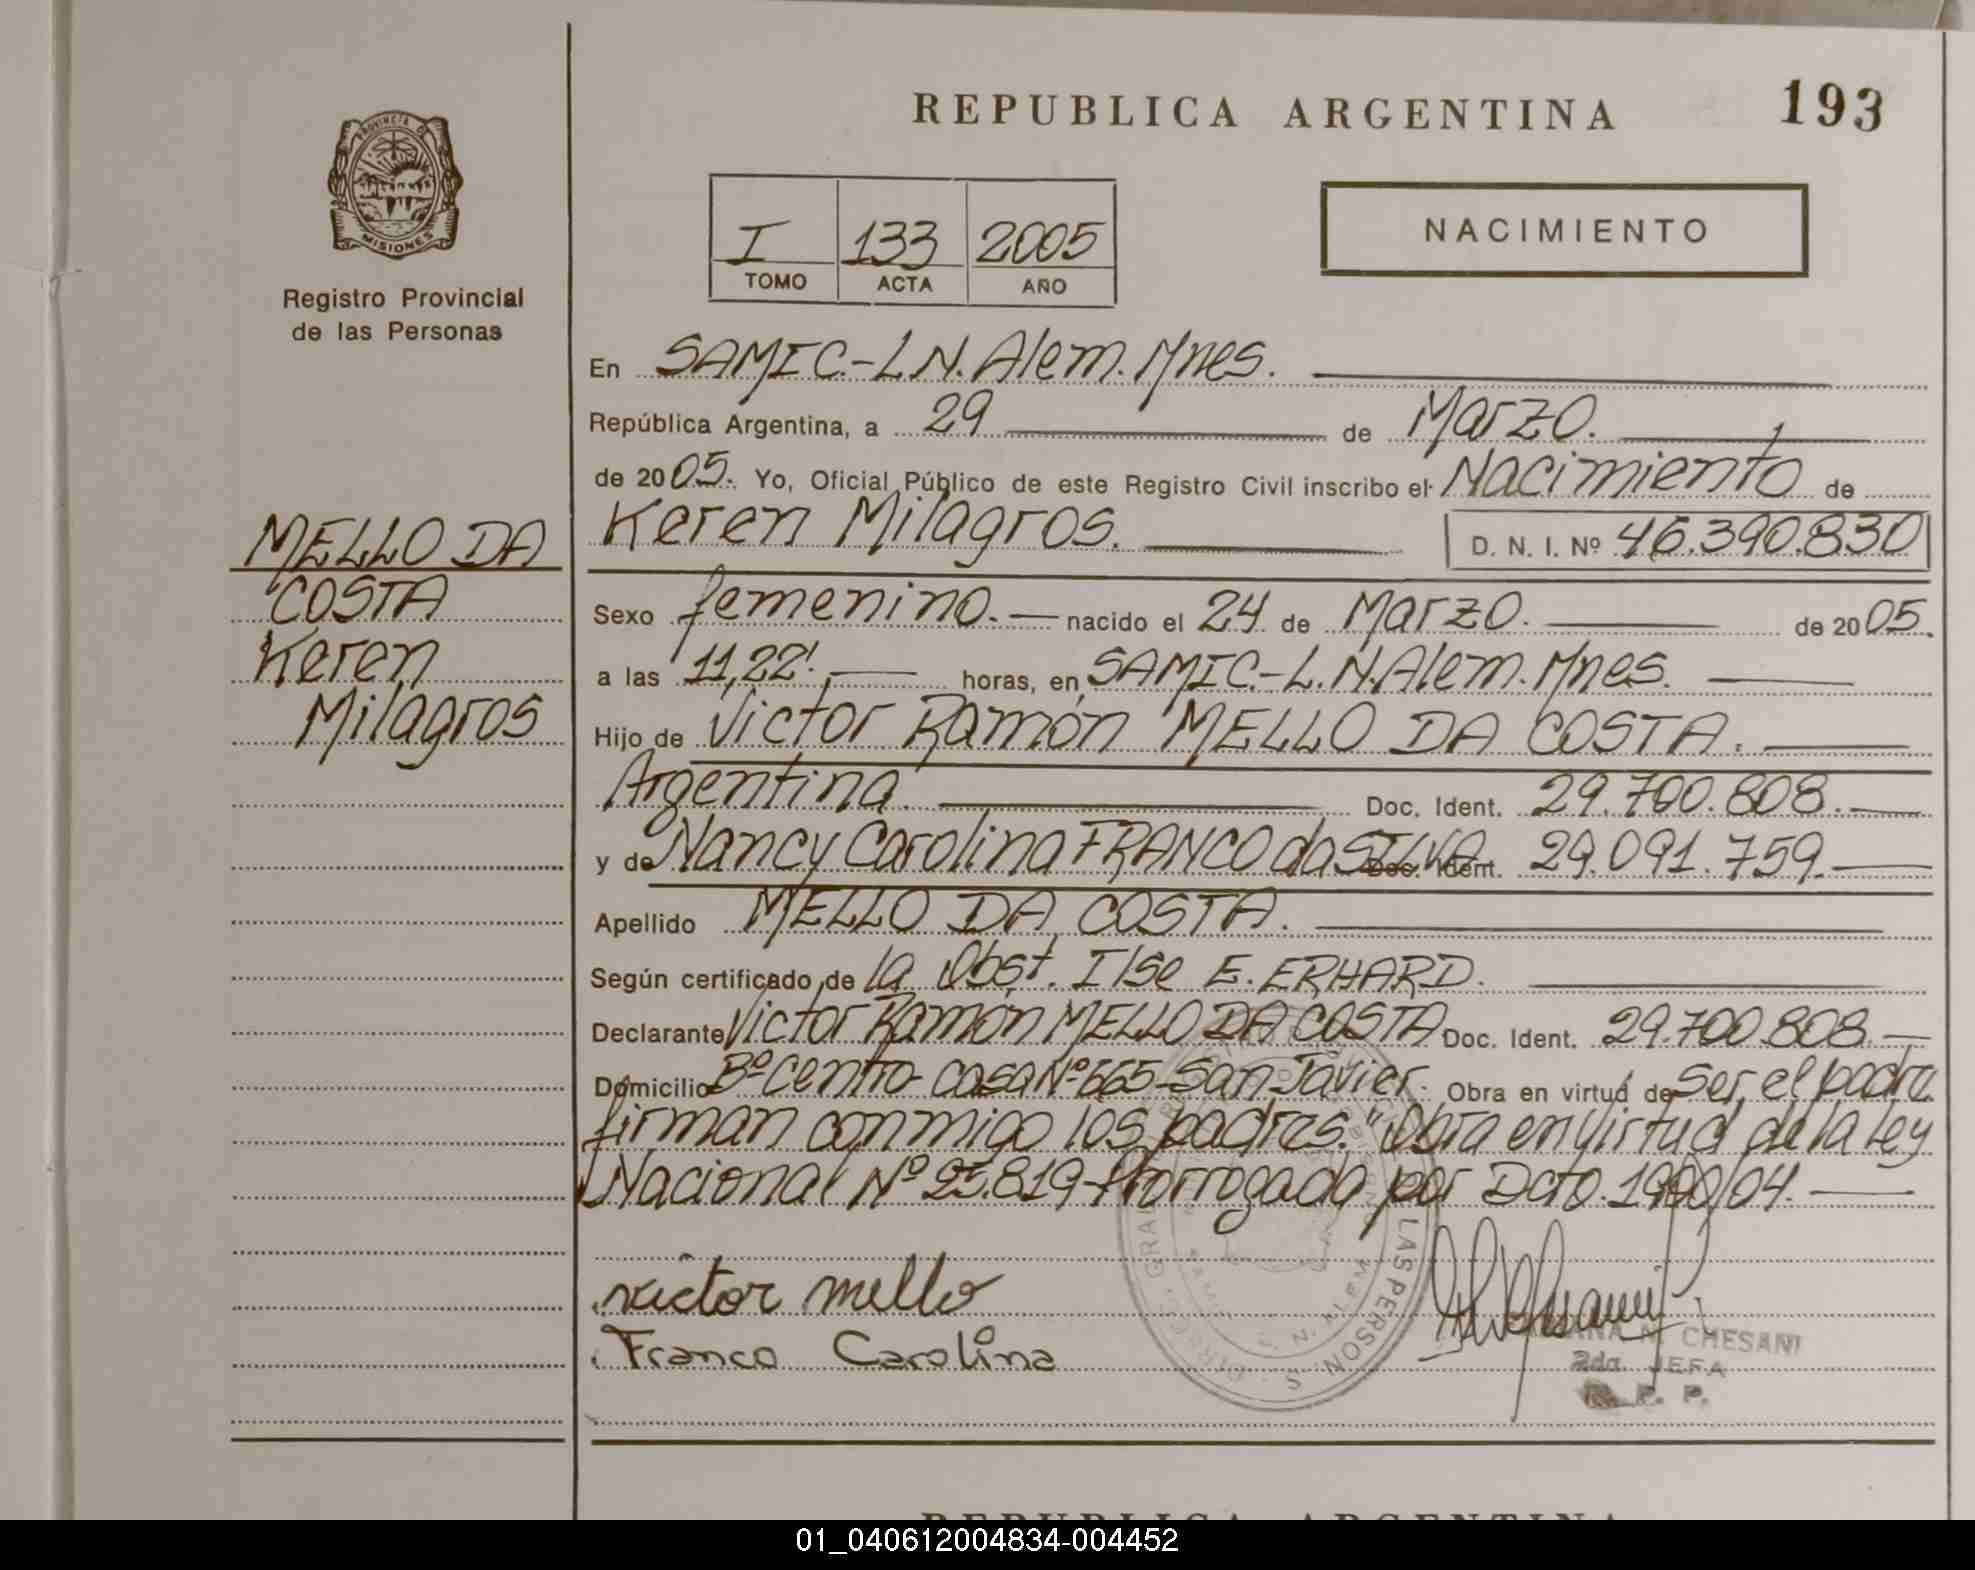 REPUBLICA ARGENTINA
193
PROVINCIA DE
MISIONES
Registro Provincial
de las Personas
I 133 2005
TOMO ACTA AÑO
NACIMIENTO
En SAMIC.-L.N.Alem.Mnes.
República Argentina, a 29 de Marzo.
de 2005. Yo, Oficial Público de este Registro Civil inscribo el Nacimiento de
Keren Milagros. D. N. I. Nº 46.390.830
MELLO DA
COSTA
Keren
Milagros
Sexo femenino. nacido el 24 de Marzo. de 2005.
a las 11,22'. horas, en SAMIC.-L.N.Alem.Mnes.
Hijo de Victor Ramón MELLO DA COSTA.
Argentina. Doc. Ident. 29.700.808.
y de Nancy Carolina FRANCO da SILVA Doc. Ident. 29.091.759.
Apellido MELLO DA COSTA.
Según certificado de la Obst. Ilse E. ERHARD.
Declarante Victor Ramón MELLO DA COSTA Doc. Ident. 29.700.808.
Domicilio Bº Centro- casa Nº 665-San Javier. Obra en virtud de ser el padre
firman conmigo los padres. "Obra en virtud de la Ley
Nacional Nº 25.819-Prorrogada por Dcto. /04.
victor mello
Franco Carolina
LAS PERSON S
N. CHESANI
2da. JEFA
R. P. P.
REPUBLICA ARGENTINA
01_040612004834-004452